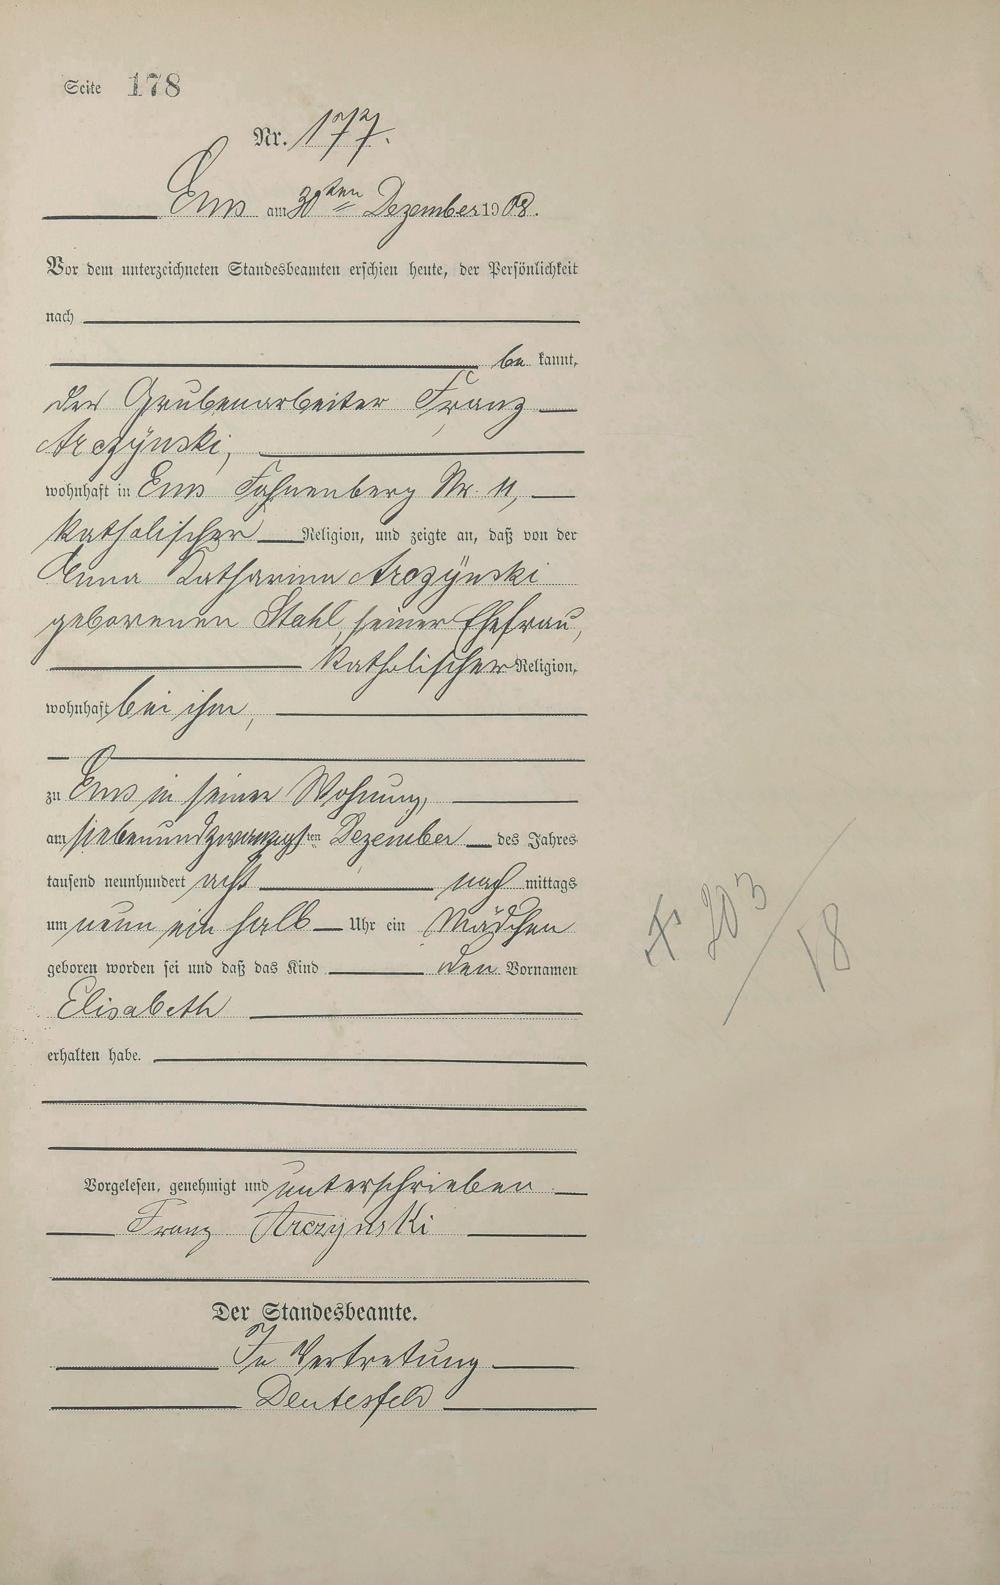 Seite 178
Nr. 177.
Ems am 30ten Dezember 1908.
Vor dem unterzeichneten Standesbeamten erschien heute, der Persönlichkeit
nach
be kannt,
der Grubenarbeiter Franz
Arczÿnski,
wohnhaft in Ems Fahnenberg Nr. 11,
katholischer Religion, und zeigte an, daß von der
Anna Katharina Arczÿnski
geborenen Stahl, seiner Ehefrau,
katholischer Religion,
wohnhaft bei ihm,
zu Ems in seiner Wohnung,
am siebenundzwanzigsten Dezember des Jahres
tausend neunhundert acht nach mittags
um neun ein halb Uhr ein Mädchen
geboren worden sei und daß das Kind den Vornamen
Elisabeth
erhalten habe.
Vorgelesen, genehmigt und unterschrieben
Franz Arczynski
Der Standesbeamte.
In Vertretung